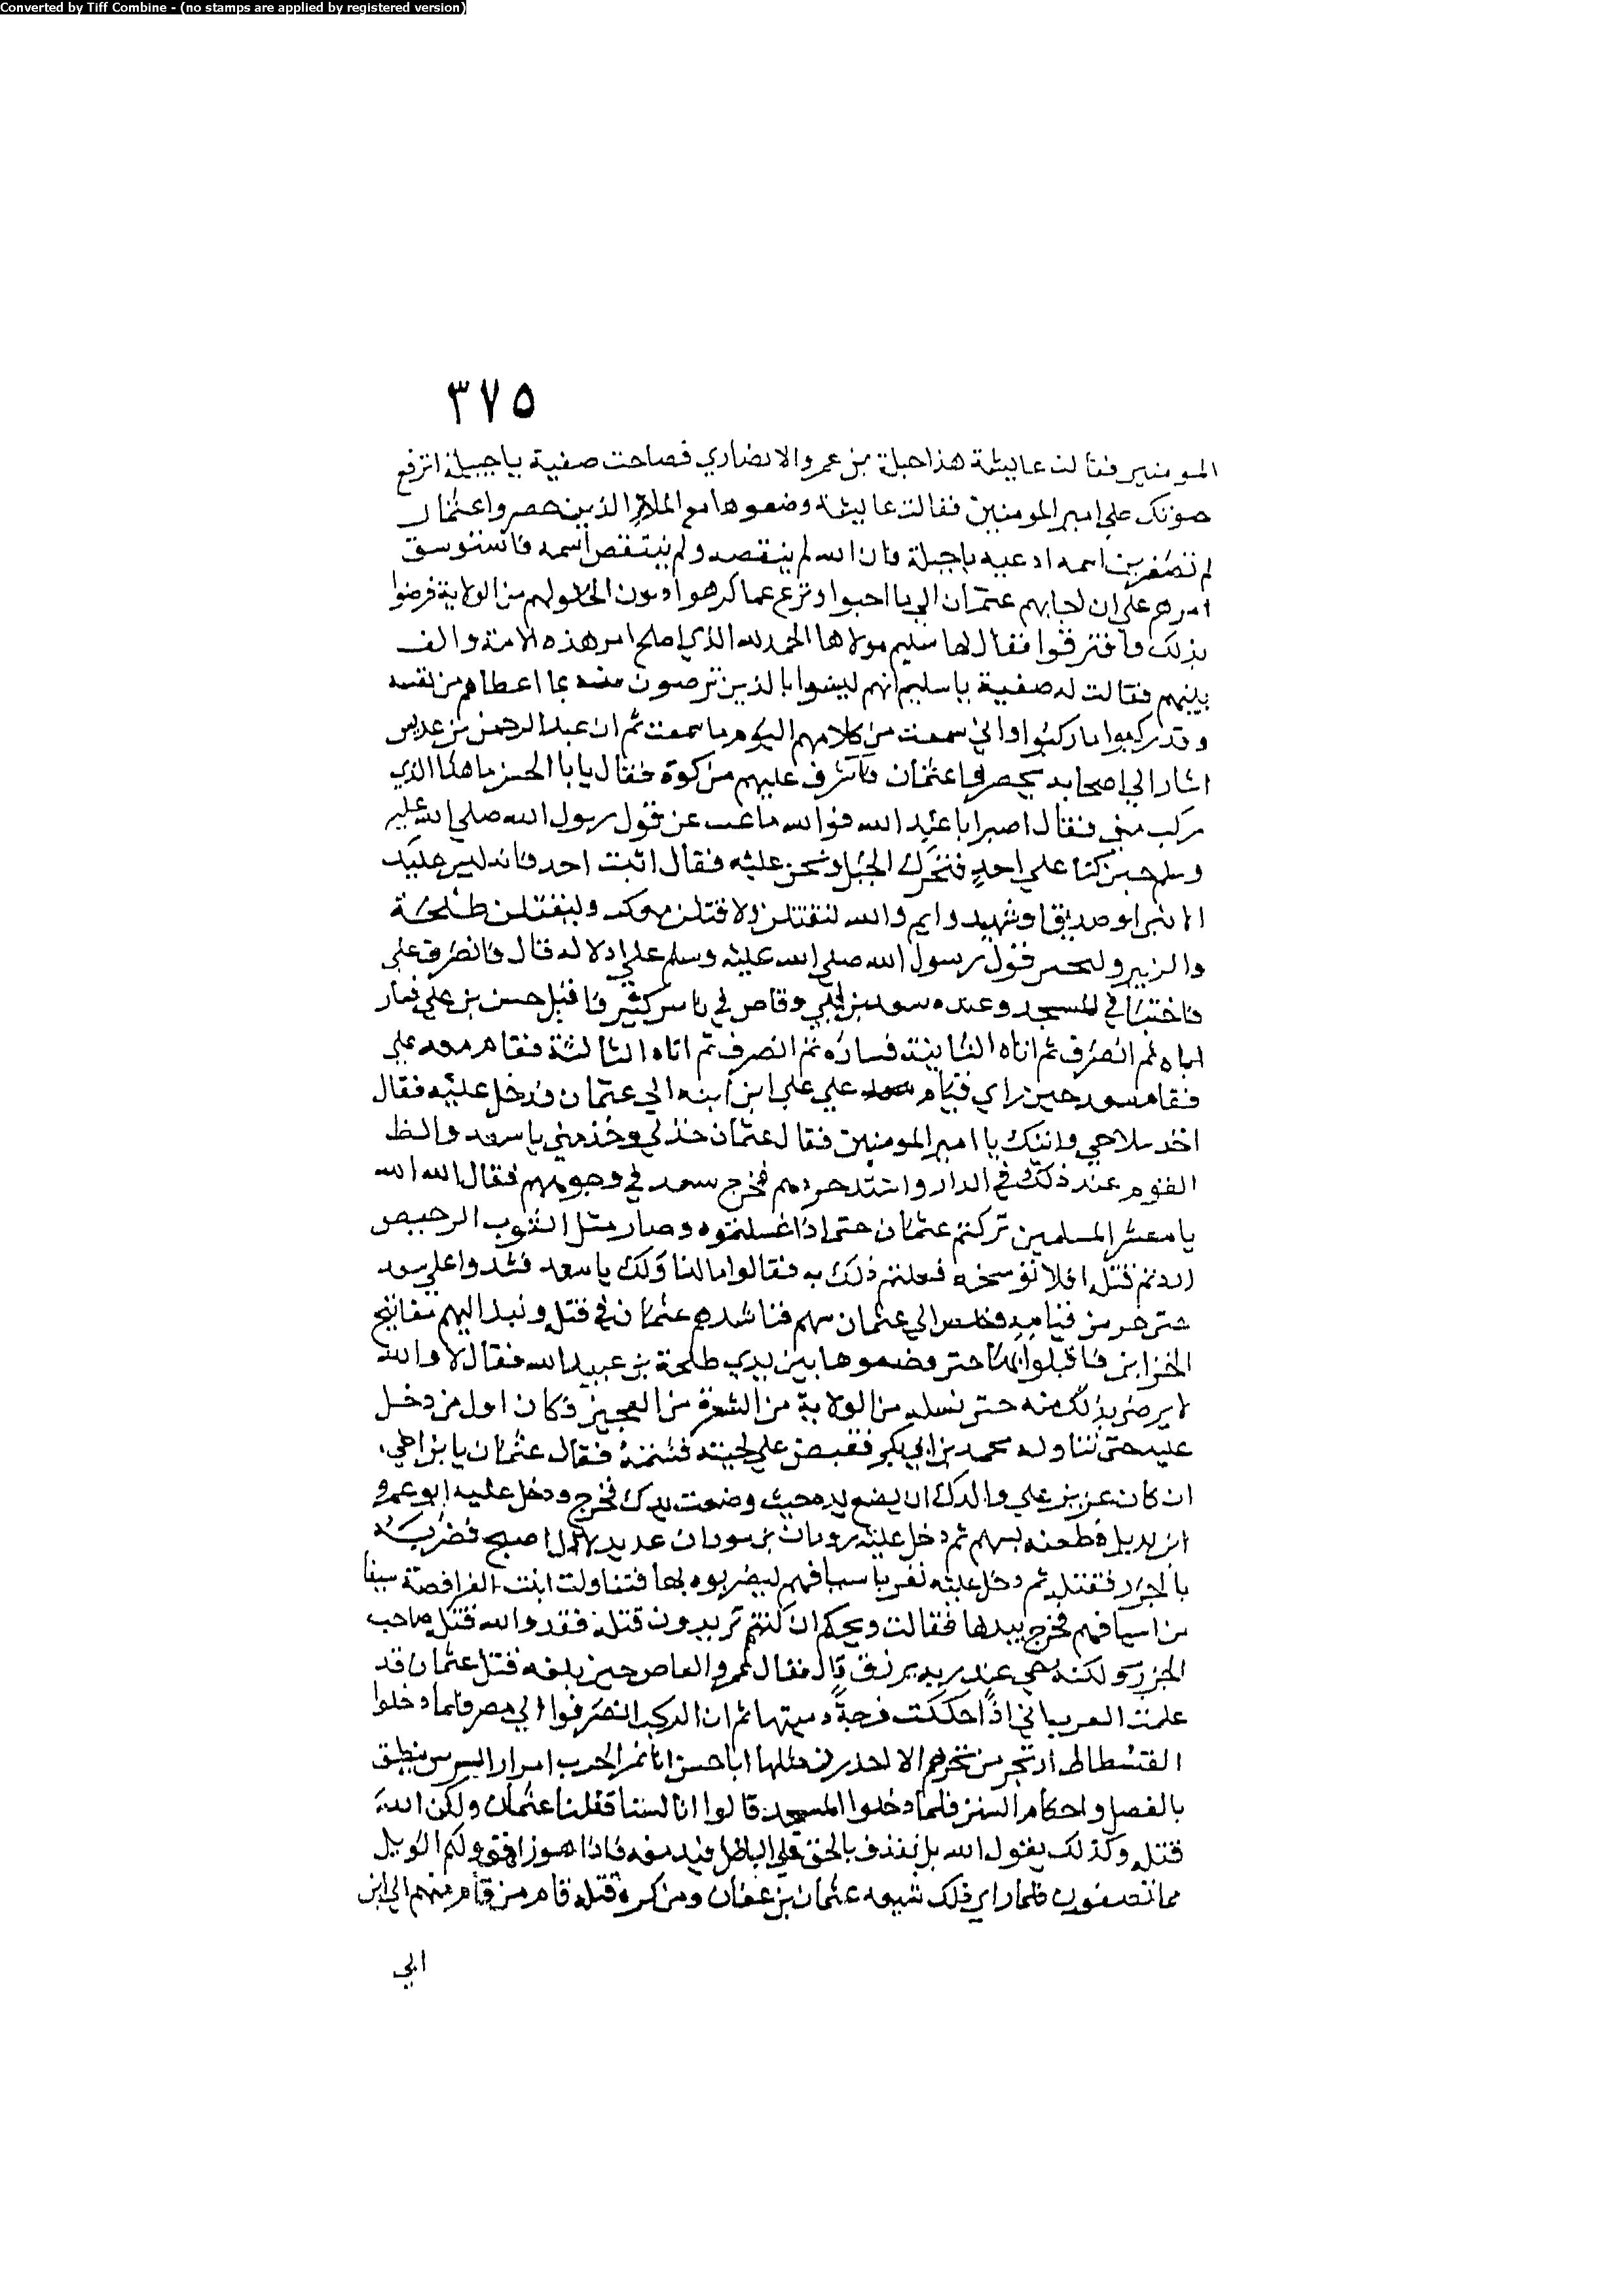 Converted by Tiff Combine - (no stamps are applied by registered version)
٣٧٥
المومنين فقالت عايشة هذا جبلة بن عمرو الانضاري فصاحت صفية يا جبيلة اترفع
صوتك علي امير المومنين فقالت عايشة وضعوها مع الملاء الذين حصروا عثمان
لم تصغرين اسمه ادعيه ياجبلة فان الله لم ينقصه ولم ينتقص اسمه فاستوسق
امرهم علي ان اجابهم عثمان الي ما احبوا ونزع عما كرهوا من الولاية فرضوا
بذلك وافترقوا فقال لها سليم مولاها الحمد لله الذي اصلح امر هذه الامة والف
بينهم فقالت له صفية يا سليم انهم ليسوا بالذين ترضون منه بما اعطاهم من نفسه
وقد ركبوا ما ركبوا واني سمعت من كلامهم اليوم ما سمعت ثم ان عبد الرحمن بن عديس
اشار الي اصحابه يحصروا عثمان فاشرف عليهم من كوة فقال يابا الحسن ما هذا الذي
ركب مني فقال اصبر ابا عبد الله فوالله ما غبت عن قول رسول الله صلي الله عليه
وسلم حين كنا علي احد فتحرك الجبل ونحن عليه فقال اثبت احد فانه ليس عليك
الا نبي او صديق او شهيد وايم والله لتقتلن ولاقتلن معك وليقتلن طلحة
والزبير قول رسول الله صلي الله عليه وسلم علي قال فانصرف علي
في المسجد وعنده سعد بن ابي وقاص في ناس كثير فاقبل حسن بن علي فسار
اباه ثم انصرف ثم اتاه الثانية فساره ثم انصرف ثم اتاه الثالثة فقام معه علي
فقام سعد حين راي قيام علي ابنه الي عثمان فدخل عليه فقال
اخذ سلاحي واتيتك يا امير المومنين فقال عثمان خذ لي وخذ مني يا سعد
القوم عند ذلك في الدار واشتد فخرج سعد في وجوههم فقال الله الله
يا معشر المسلمين تركتم عثمان حتي اذا غسلتموه وصار مثل الثوب الرحيض
اردتم قتله افلا بوسخه فعلتم ذلك به فقالوا مالنا ولك يا سعد فشدوا علي سعد
حتي خر من قيامه الي عثمان سهم فناشدهم عثمان في قتله ونبذ اليهم مفاتيح
الخزاين فاقبلوا بها حتي وضعوها بين يدي طلحة بن عبيد الله فقال لا والله
لا يرضي بذلك منه حتي نسله من الولاية سل الشعرة من العجين فكان اول من دخل
عليه حتي تناوله محمد بن ابي بكر فقبض علي لحيته فشتمه فقال عثمان يا بن اخي
ان كان عزيز علي والدك ان يضع يده حيث وضعت يدك فخرج ودخل عليه ابو عمرو
ابن بديل فطعنه بسهم ثم دخل عليه رومان بن سودان فضربه
بالجرز فقتله ثم دخل عليه نفر باسيافهم ليضربوه بها فتناولت ابنت الفرافصة سيفا
من اسيافهم فخرج بيدها فقالت ويحكم ان كنتم تريدون قتله فقد والله قتله صاحب
الجرز ولكنه حي عند ربه يرزق قال فقال عمرو العاص حين بلغه قتل عثمان قد
علمت العرب اني اذا حككت قرحة دميتها ثم ان الركب انصرفوا الي مصر فلما دخلوا
الفسطاط ارتجز من تخرهم الا احذرن مثلها ابا حسن انا نمر الحرب امرار الرسن ينطق
بالفصل واحكام السنن فلما دخلوا المسجد قالوا انا لسنا قتلنا عثمان ولكن الله
قتله وكذلك يقول الله بل نقذف بالحق علي الباطل فيدمغه فاذا هو زاهق ولكم الويل
مما تصفون فلما راي ذلك شيعه عثمان بن عفان ومن كره قتله قام من قام منهم الي ابن
ابي